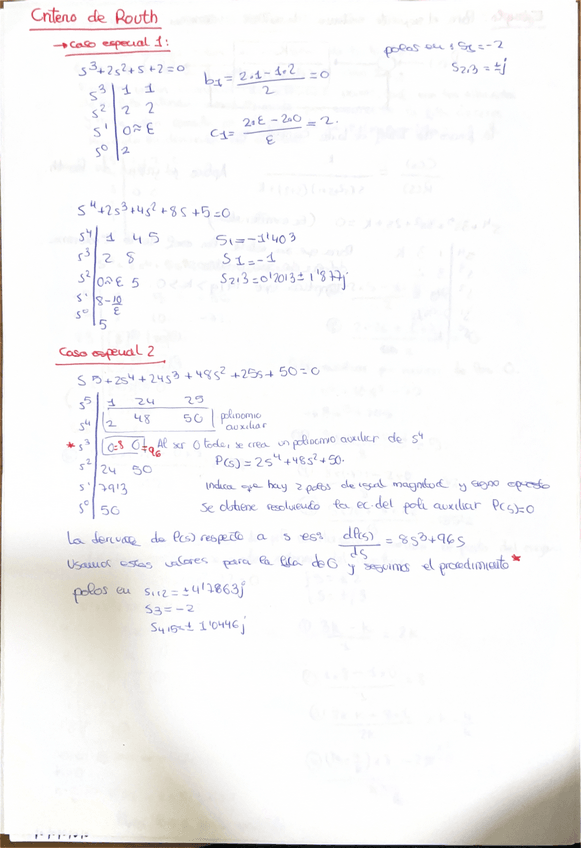 Criterio de Routh
→ Caso especial 1:
s³+2s²+s+2=0
s³ | 1 1
s² | 2 2
s¹ | 0≈ε
s⁰ | 2
b₁ = (2·1-1·2)/2 = 0
c₁ = (2·ε - 2·0)/ε = 2.
polos en s s₁=-2
s₂,₃ = ±j
s⁴+2s³+4s²+8s+5=0
s⁴ | 1 4 5
s³ | 2 8
s² | 0≈ε 5
s¹ | 8-10/ε
s⁰ | 5
s₁=-1'403
s₁=-1
s₂,₃=0'2013±1'877j
Caso especial 2
s5+2s⁴+24s³+48s²+25s+50=0
s⁵ | 1 24 25
s⁴ | 2 48 50 | polinomio auxiliar
* s³ | 0=8 0=96 Al ser 0 todo, se crea un polinomio auxiliar de s⁴
s² | 24 50 P(s)=2s⁴+48s²+50.
s¹ | 79'3 Indica que hay 2 polos de igual magnitud y signo opuesto
s⁰ | 50 Se obtiene resolviendo la ec. del poli auxiliar P(s)=0
La derivada de P(s) respecto a s es: dP(s)/ds = 8s³+96s
Usamos estos valores para la fila de 0 y seguimos el procedimiento *
polos en s₁,₂=±4'7863j
s₃=-2
s₄,₅=±1'0446j